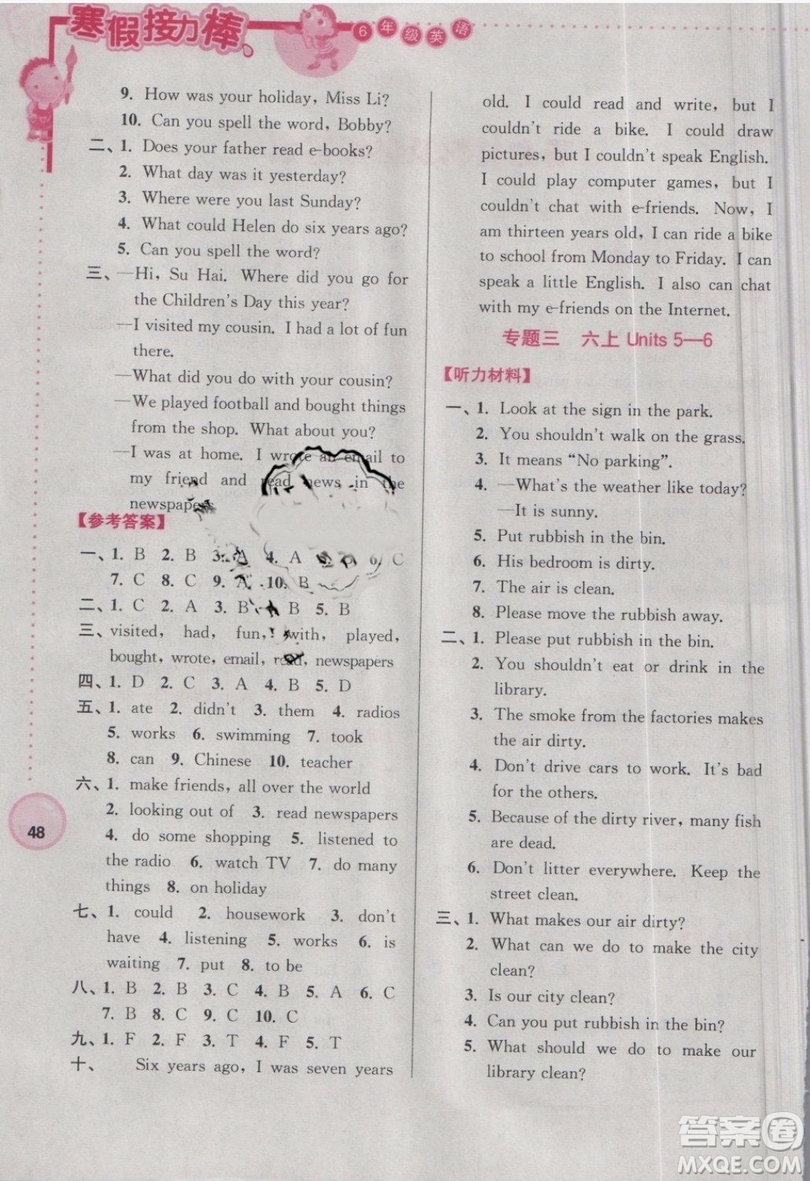 寒假接力棒
6年级英语
9. How was your holiday, Miss Li?
10. Can you spell the word, Bobby?
二、1. Does your father read e-books?
2. What day was it yesterday?
3. Where were you last Sunday?
4. What could Helen do six years ago?
5. Can you spell the word?
三、—Hi, Su Hai. Where did you go for
the Children's Day this year?
—I visited my cousin. I had a lot of fun
there.
—What did you do with your cousin?
—We played football and bought things
from the shop. What about you?
—I was at home. I wrote an email to
my friend and read news in the
newspapers.
【参考答案】
一、1. B 2. B 3. A 4. A 6. C
7. C 8. C 9. A 10. B
二、1. C 2. A 3. B 4. B 5. B
三、visited, had, fun, with, played,
bought, wrote, email, read, newspapers
四、1. D 2. C 3. A 4. B 5. D
五、1. ate 2. didn't 3. them 4. radios
5. works 6. swimming 7. took
8. can 9. Chinese 10. teacher
六、1. make friends, all over the world
2. looking out of 3. read newspapers
4. do some shopping 5. listened to
the radio 6. watch TV 7. do many
things 8. on holiday
七、1. could 2. housework 3. don't
have 4. listening 5. works 6. is
waiting 7. put 8. to be
八、1. B 2. B 3. C 4. B 5. A 6. C
7. B 8. B 9. C 10. C
九、1. F 2. F 3. T 4. F 5. T
十、 Six years ago, I was seven years
48
old. I could read and write, but I
couldn't ride a bike. I could draw
pictures, but I couldn't speak English.
I could play computer games, but I
couldn't chat with e-friends. Now, I
am thirteen years old, I can ride a bike
to school from Monday to Friday. I can
speak a little English. I also can chat
with my e-friends on the Internet.
专题三 六上 Units 5—6
【听力材料】
一、1. Look at the sign in the park.
2. You shouldn't walk on the grass.
3. It means “No parking”.
4. —What's the weather like today?
—It is sunny.
5. Put rubbish in the bin.
6. His bedroom is dirty.
7. The air is clean.
8. Please move the rubbish away.
二、1. Please put rubbish in the bin.
2. You shouldn't eat or drink in the
library.
3. The smoke from the factories makes
the air dirty.
4. Don't drive cars to work. It's bad
for the environment.
5. Because of the dirty river, many fish
are dead.
6. Don't litter everywhere. Keep the
street clean.
三、1. What makes our air dirty?
2. What can we do to make the city
clean?
3. Is our city clean?
4. Can you put rubbish in the bin?
5. What should we do to make our
library clean?
答案圈
MXQE.COM